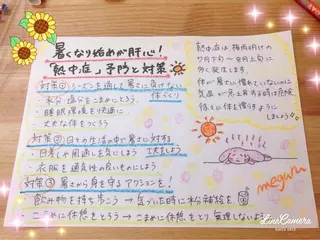 暑くなり始めが肝心!
「熱中症」予防と対策
対策① シーズンを通して暑さに負けない
体づくり
・水分・塩分をこまめにとろう。
・睡眠環境を快適に
・丈夫な体をつくろう
対策② 日々の生活の中で暑さに対する
工夫をしよう
・日差しや風通しを気にしよう
・衣服を通気性の良いものにしよう
対策③ 暑さから身を守るアクションを!
・飲み物を持ち歩こう → 気づいた時に水分補給を
・こまめに休憩をとろう → こまめに休憩をとり無理しないように
熱中症は梅雨明けの
7月下旬〜8月上旬に
多く発生します。
体が暑さに慣れていないのに
気温が急上昇する時は危険
徐々に体を慣らすように
しましょう
megumi
LINE Camera